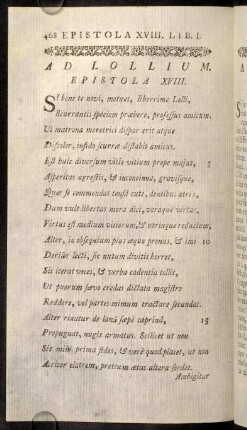 468 EPISTOLA XVIII. LIB. I.
AD LOLLIUM.
EPISTOLA XVIII.
SI bene te novi, metues, liberrime Lolli,
Scurrantis speciem præbere, professus amicum.
Ut matrona meretrici dispar erit atque
Discolor, infido scurræ distabit amicus.
Est huic diversum vitio vitium prope majus, 5
Asperitas agrestis, & inconcinna, gravisque,
Quæ se commendat tonsâ cute, dentibus atris,
Dum vult libertas mera dici, veraque virtus.
Virtus est medium vitiorum, & utrinque reductum.
Alter, in obsequium plus æquo pronus, & imi 10
Derisor lecti, sic nutum divitis horret,
Sic iterat voces, & verba cadentia tollit,
Ut puerum sævo credas dictata magistro
Reddere, vel partes mimum tractare secundas.
Alter rixatur de lanâ sæpè caprinâ, 15
Propugnat, nugis armatus. Scilicet ut non
Sit mihi prima fides, & verè quod placet, ut non
Acriter elatrem, pretium ætas altera sordet.
Ambigitur